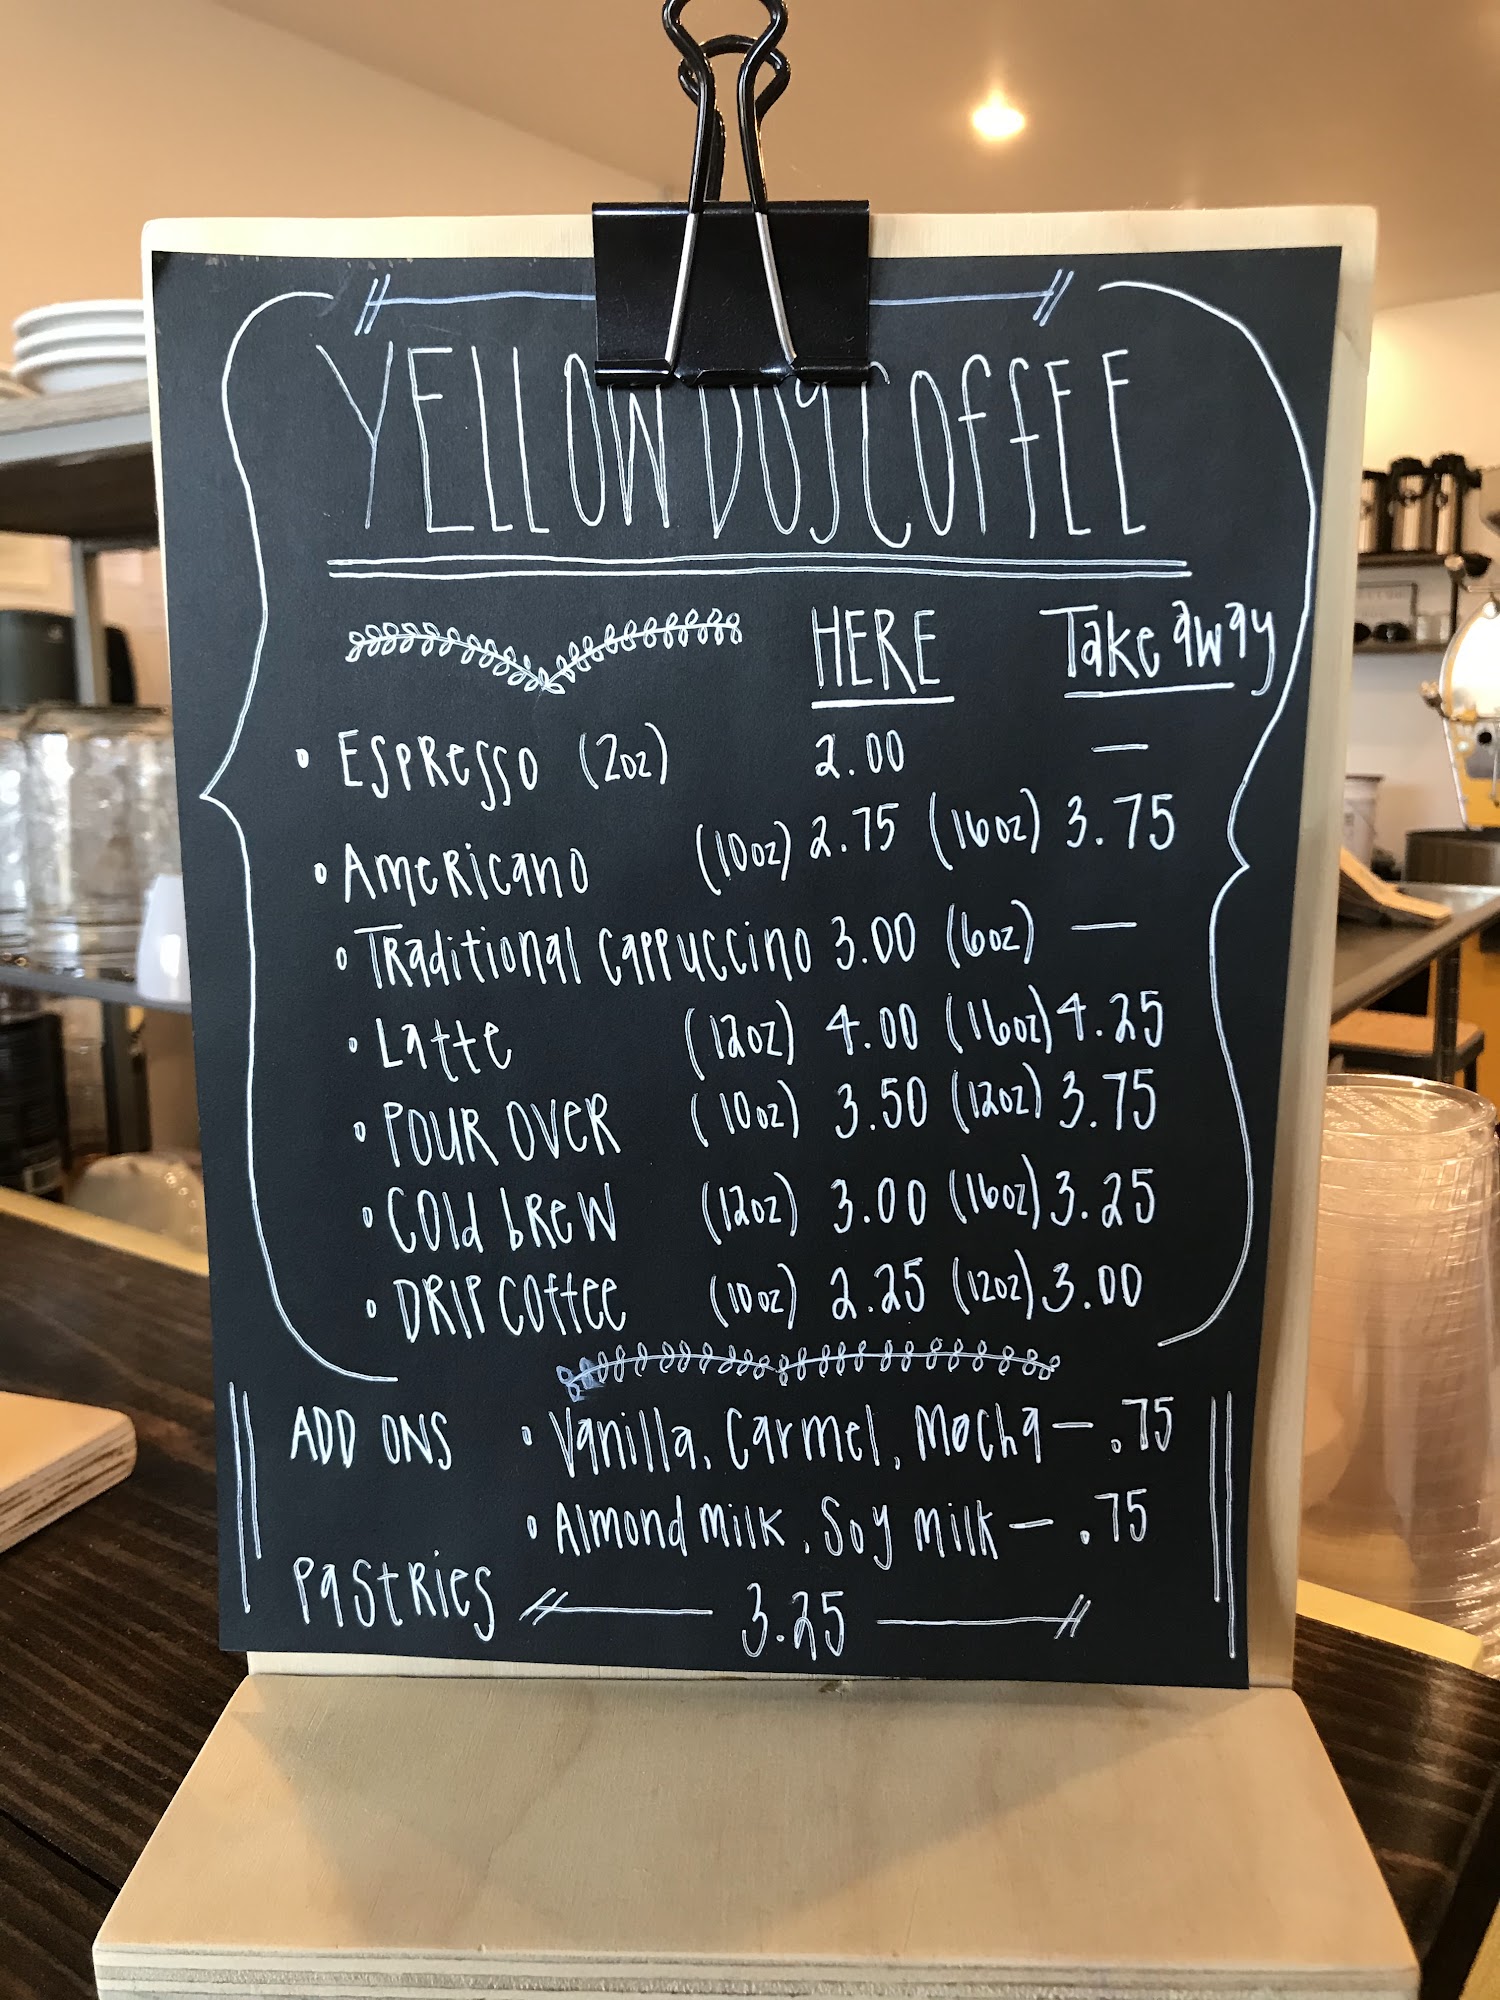 YELLOW DOG COFFEE
HERE Take away
Espresso (2oz) 2.00 —
Americano (10oz) 2.75 (16oz) 3.75
Traditional Cappuccino 3.00 (6oz) —
Latte (12oz) 4.00 (16oz) 4.25
Pour Over (10oz) 3.50 (12oz) 3.75
Cold Brew (12oz) 3.00 (16oz) 3.25
Drip Coffee (10oz) 2.25 (12oz) 3.00
ADD ONS • Vanilla, Carmel, Mocha — .75
• Almond milk, Soy milk — .75
Pastries 3.25